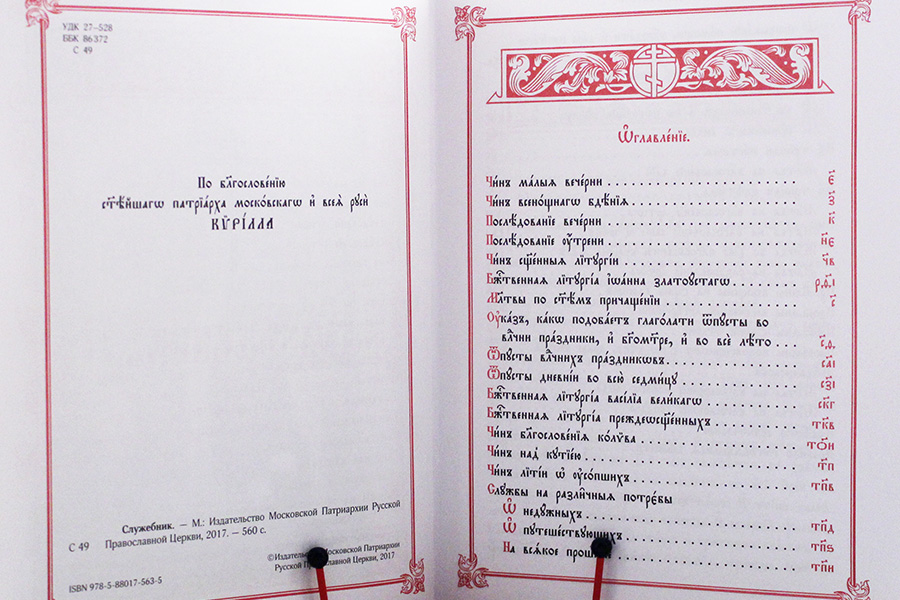 УДК 27–528
ББК 86372
С 49
По бл҃гослове́нїю
ст҃ѣ́йшагѡ патрїа́рха моско́вскагѡ и҆ всеѧ̀ рꙋсѝ
КѴРІ́ЛЛА
Служебник. — М.: Издательство Московской Патриархии Русской
С 49 Православной Церкви, 2017. — 560 с.
©Издательство Московской Патриархии
Русской Православной Церкви, 2017
ISBN 978-5-88017-563-5
Ѡ҆главле́нїе.
Чи́нъ ма́лыѧ вече́рни . . . є҃
Чи́нъ всено́щнагѡ бдѣ́нїѧ . . . з҃
Послѣ́дованїе вече́рни . . . к҃
Послѣ́дованїе ᲂу҆́трени . . . н҃є
Чи́нъ сщ҃е́нныѧ лїтꙋргі́и . . . ч҃в
Бж҃е́ственнаѧ лїтꙋргі́а і҆ѡа́нна златоꙋ́стагѡ . . .
Мл҃твы по ст҃ѣ́мъ причаще́нїи . . . с҃
Оу҆ка́зъ, ка́кѡ подоба́етъ глаго́лати ѿпꙋ́сты во
влⷣчни пра́здники, и҆ бг҃ома́тре, и҆ во всѐ лѣ́то . . .
Ѿпꙋ́сты влⷣчнихъ пра́здникѡвъ . . . са҃і
Ѿпꙋ́сты дневні́и во всю̀ седми́цꙋ . . . сз҃і
Бж҃е́ственнаѧ лїтꙋргі́а васі́лїа вели́кагѡ . . . ск҃г
Бж҃е́ственнаѧ лїтꙋргі́а преждеѡсщ҃е́нныхъ . . . тк҃в
Чи́нъ бл҃гослове́нїѧ ко́лѵва . . . то҃и
Чи́нъ над̾ кꙋтїе́ю . . . т҃п
Чи́нъ лїті́и ѡ҆ ᲂу҆со́пшихъ . . . тп҃в
Слꙋ́жбы на разли̑чныѧ потре́бы
Ѡ҆ недꙋ́жныхъ . . . тп҃д
Ѡ҆ пꙋтеше́ствꙋющихъ . . . тп҃ѕ
На всѧ́кое . . . тп҃и